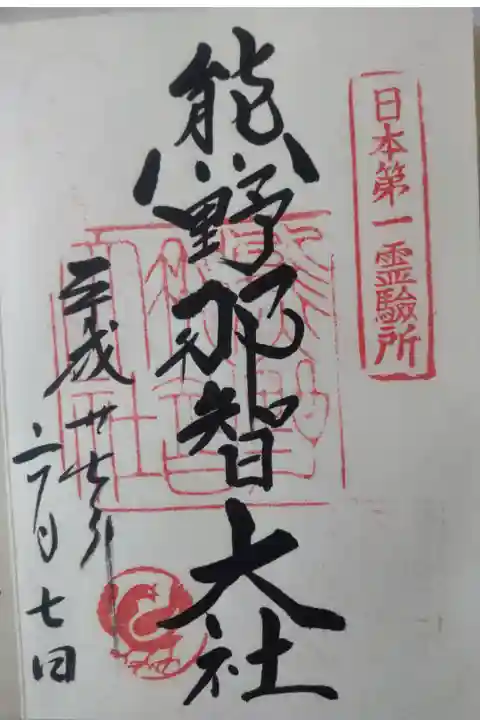 日本第一霊驗所
熊野那智大社
平成廿七年
月七日